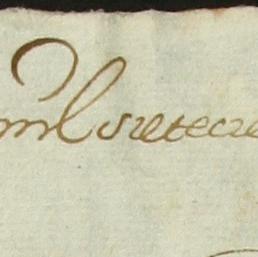 mil setecie